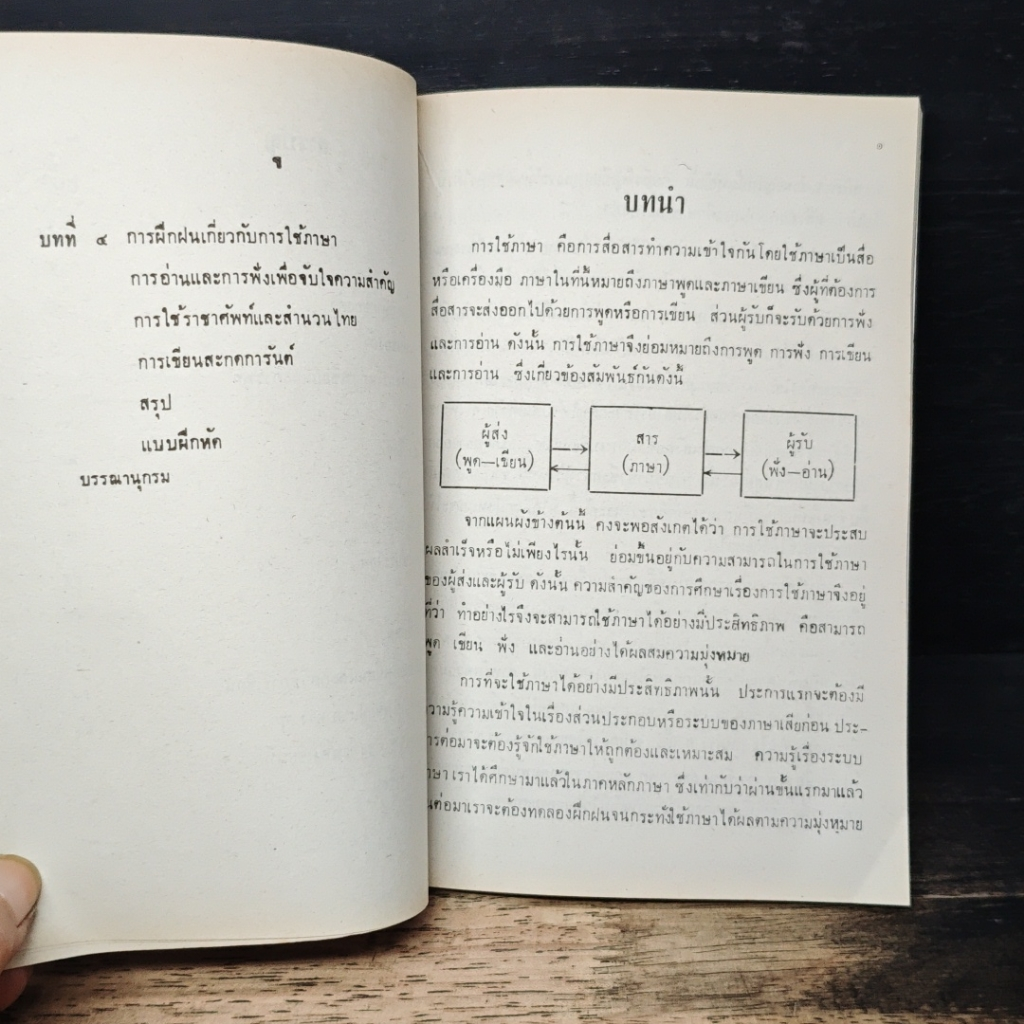 ข
บทที่ ๔ การฝึกฝนเกี่ยวกับการใช้ภาษา
การอ่านและการฟังเพื่อจับใจความสำคัญ
การใช้ราชาศัพท์และสำนวนไทย
การเขียนสะกดการันต์
สรุป
แบบฝึกหัด
บรรณานุกรม
๑
บทนำ
การใช้ภาษา คือการสื่อสารทำความเข้าใจกันโดยใช้ภาษาเป็นสื่อ
หรือเครื่องมือ ภาษาในที่นี้หมายถึงภาษาพูดและภาษาเขียน ซึ่งผู้ที่ต้องการ
สื่อสารจะส่งออกไปด้วยการพูดหรือการเขียน ส่วนผู้รับก็จะรับด้วยการฟัง
และการอ่าน ดังนั้น การใช้ภาษาจึงย่อมหมายถึงการพูด การฟัง การเขียน
และการอ่าน ซึ่งเกี่ยวข้องสัมพันธ์กันดังนี้
ผู้ส่ง
(พูด—เขียน)
สาร
(ภาษา)
ผู้รับ
(ฟัง—อ่าน)
จากแผนผังข้างต้นนี้ คงจะพอสังเกตได้ว่า การใช้ภาษาจะประสบ
ผลสำเร็จหรือไม่เพียงไรนั้น ย่อมขึ้นอยู่กับความสามารถในการใช้ภาษา
ของผู้ส่งและผู้รับ ดังนั้น ความสำคัญของการศึกษาเรื่องการใช้ภาษาจึงอยู่
ที่ว่า ทำอย่างไรจึงจะสามารถใช้ภาษาได้อย่างมีประสิทธิภาพ คือสามารถ
พูด เขียน ฟัง และอ่านอย่างได้ผลสมความมุ่งหมาย
การที่จะใช้ภาษาได้อย่างมีประสิทธิภาพนั้น ประการแรกจะต้องมี
ความรู้ความเข้าใจในเรื่องส่วนประกอบหรือระบบของภาษาเสียก่อน ประ-
การต่อมาจะต้องรู้จักใช้ภาษาให้ถูกต้องและเหมาะสม ความรู้เรื่องระบบ
ภาษา เราได้ศึกษามาแล้วในภาคหลักภาษา ซึ่งเท่ากับว่าผ่านขั้นแรกมาแล้ว
ต่อมาเราจะต้องทดลองฝึกฝนจนกระทั่งใช้ภาษาได้ผลตามความมุ่งหมาย